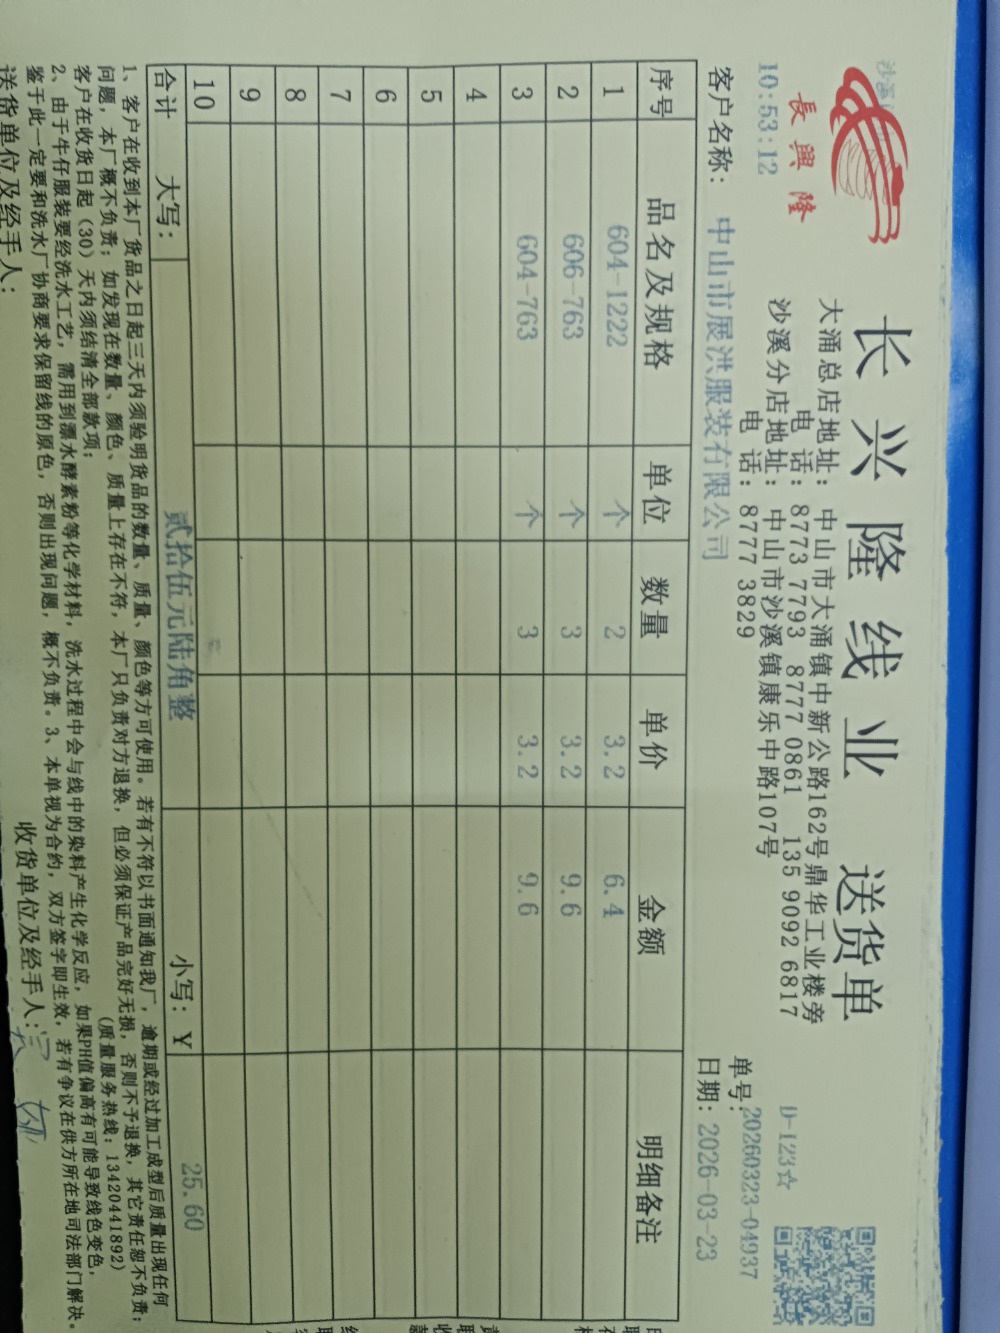 長興隆
长兴隆线业 送货单
大涌总店地址：中山市大涌镇中新公路162号鼎华工业楼旁
电 话：8773 7793 8777 0861 135 9092 6817
沙溪分店地址：中山市沙溪镇康乐中路107号
电 话：8777 3829
沙溪
10:53:12
D-123☆
单号：20260323-04937
日期：2026-03-23
客户名称：中山市展洪服装有限公司
序号 品名及规格 单位 数量 单价 金额 明细备注
1 604-1222 个 2 3.2 6.4
2 606-763 个 3 3.2 9.6
3 604-763 个 3 3.2 9.6
4
5
6
7
8
9
10
合计 大写：贰拾伍元陆角整 小写：￥ 25.60
1、客户在收到本厂货品之日起三天内须验明货品的数量、质量、颜色等方可使用。若有不符以书面通知我厂，逾期或经过加工成型后质量出现任何
问题，本厂概不负责；如发现在数量、颜色、质量上存在不符，本厂只负责对方退换，但必须保证产品完好无损，否则不予退换，其它责任恕不负责；
客户在收货日起（30）天内须结清全部款项； （质量服务热线：13420441892）
2、由于牛仔服装要经洗水工艺，需用到漂水酵素粉等化学材料，洗水过程中会与线中的染料产生化学反应，如果PH值偏高有可能导致线色变色，
鉴于此一定要和洗水厂协商要求保留线的原色，否则出现问题，概不负责。3、本单视为合约，双方签字即生效，若有争议在供方所在地司法部门解决。
送货单位及经手人： 收货单位及经手人：